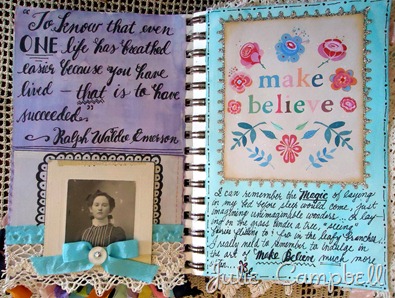 "To know that even
ONE life has breathed
easier because you have
lived — that is to have
succeeded."
- Ralph Waldo Emerson
make
believe
I can remember the Magic of laying
in my bed before sleep would come, just
imagining unimaginable wonders... Or lay-
ing on the grass under a tree, "seeing"
faeries flitting to & fro in the leafy branches.
I really need to remember to indulge in
the art of Make Believe much more
Julie Campbell